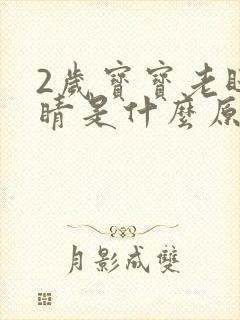 2歲寶寶老眨
睛是什麼原
月影成雙